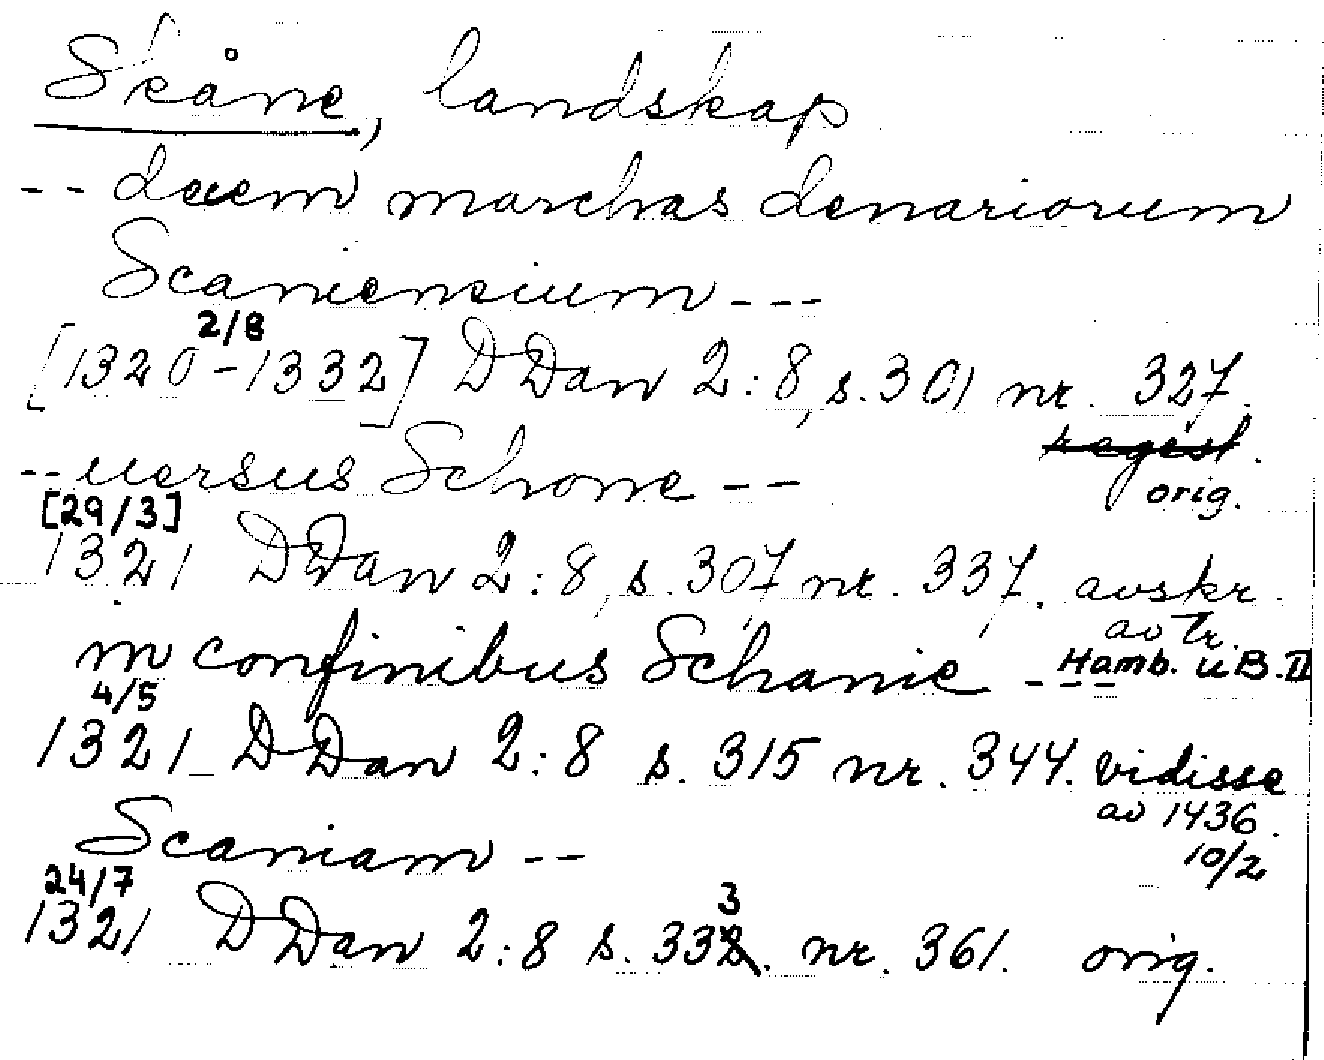 Skåne, landskap
-- decem marchas denariorum
Scaniensium ---
2/8
[1320-1332] DDan 2:8, s. 301 nr. 327.
regest.
orig.
-- uersus Schone --
[29/3]
1321 DDan 2:8, s. 307 nr. 337. avskr.
av Tr.
Hamb. UB. II
in confinibus Schanie ---
4/5
1321 DDan 2:8 s. 315 nr. 344. vidisse
av 1436.
10/2
Scaniam --
24/7
3
1321 DDan 2:8 s. 338. nr. 361. orig.